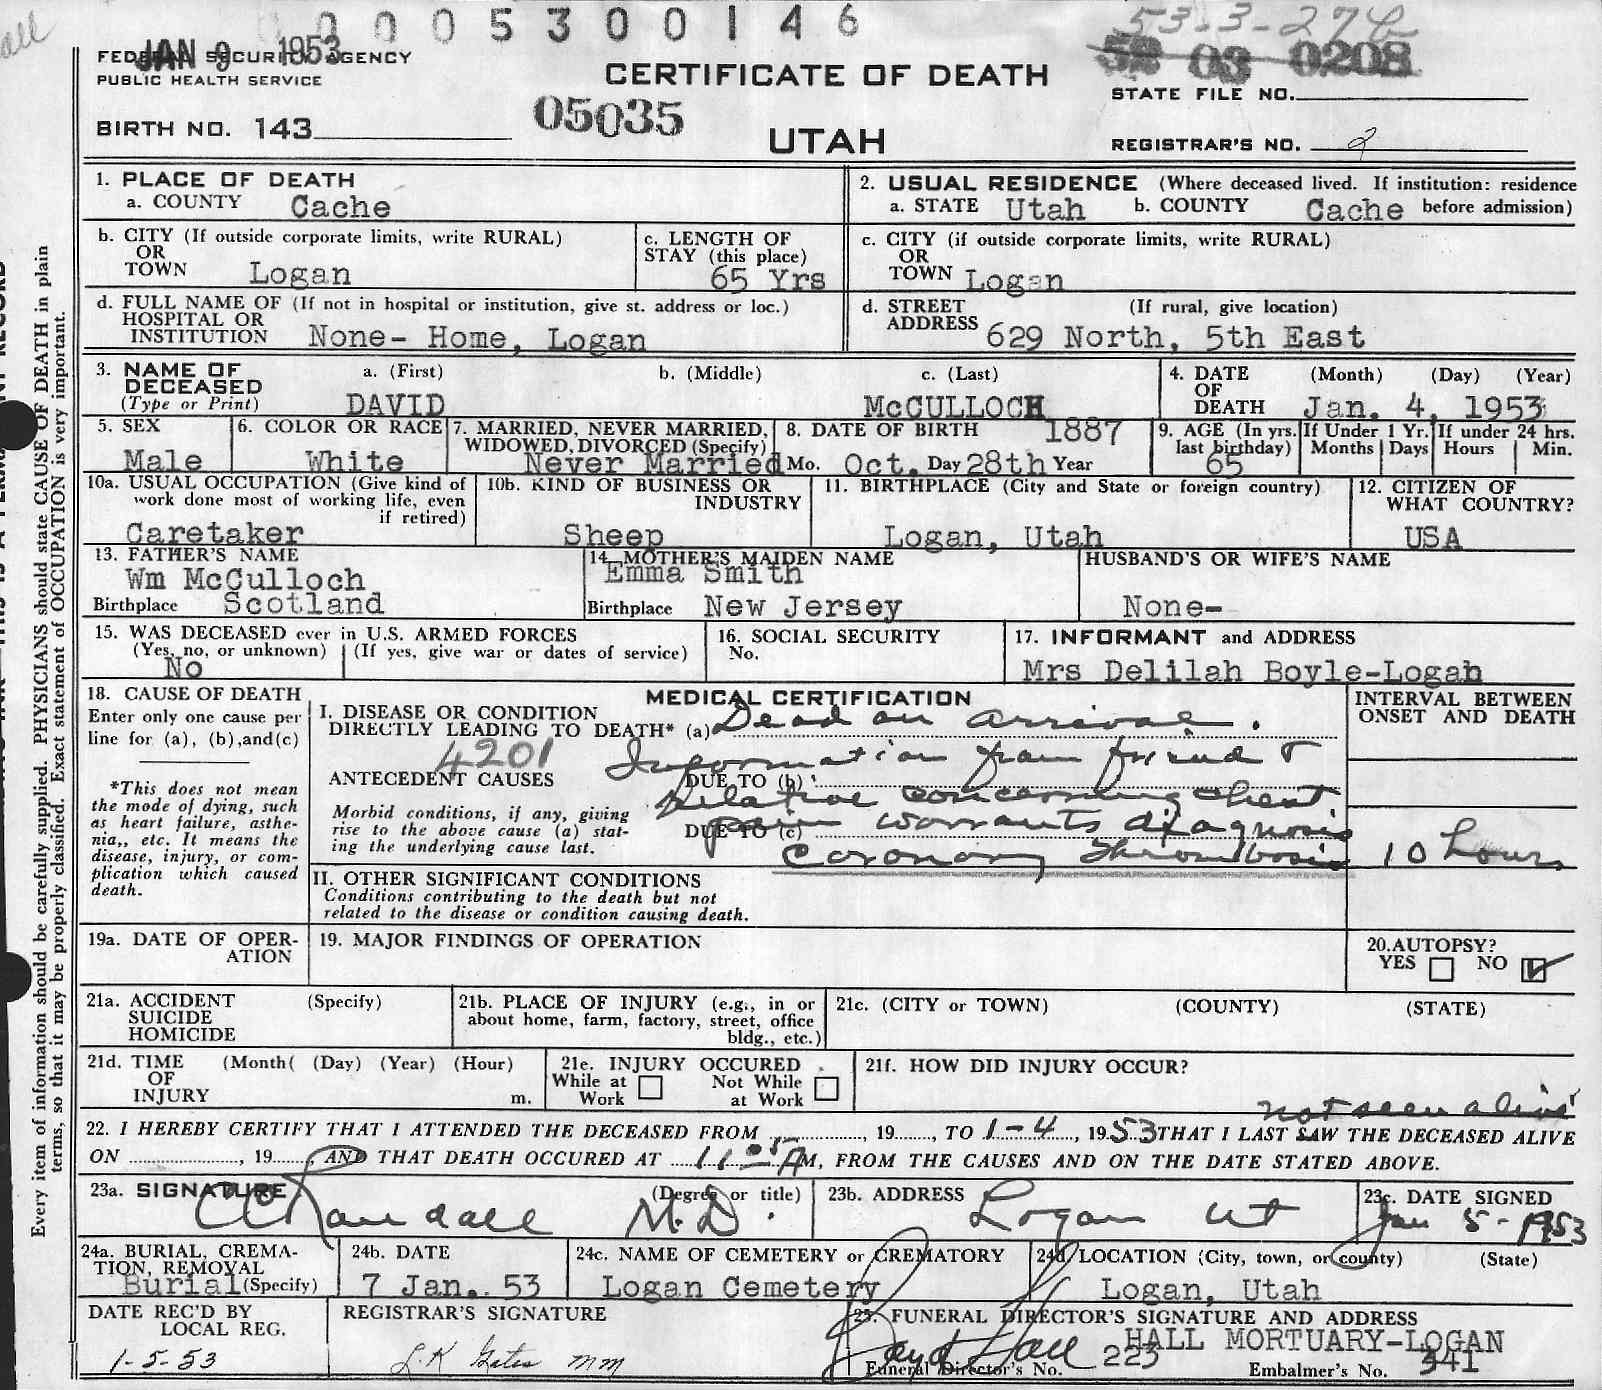 all
0005300146
53-3-276
JAN 9 1953
FEDERAL SECURITY AGENCY
PUBLIC HEALTH SERVICE
CERTIFICATE OF DEATH
52 03 0208
STATE FILE NO.
BIRTH NO. 143
05035
UTAH
REGISTRAR'S NO. 2
1. PLACE OF DEATH
a. COUNTY Cache
2. USUAL RESIDENCE (Where deceased lived. If institution: residence
a. STATE Utah b. COUNTY Cache before admission)
b. CITY (If outside corporate limits, write RURAL)
OR
TOWN Logan
c. LENGTH OF
STAY (this place)
65 Yrs
c. CITY (if outside corporate limits, write RURAL)
OR
TOWN Logan
d. FULL NAME OF (If not in hospital or institution, give st. address or loc.)
HOSPITAL OR
INSTITUTION None- Home, Logan
d. STREET (If rural, give location)
ADDRESS 629 North, 5th East
3. NAME OF
DECEASED
(Type or Print)
a. (First) b. (Middle) c. (Last)
DAVID McCULLOCH
4. DATE (Month) (Day) (Year)
OF
DEATH Jan. 4, 1953
5. SEX
Male
6. COLOR OR RACE
White
7. MARRIED, NEVER MARRIED,
WIDOWED, DIVORCED (Specify)
Never Married
8. DATE OF BIRTH 1887
Mo. Oct. Day 28th Year
9. AGE (In yrs.
last birthday)
65
If Under 1 Yr.
Months Days
If under 24 hrs.
Hours Min.
10a. USUAL OCCUPATION (Give kind of
work done most of working life, even
if retired)
Caretaker
10b. KIND OF BUSINESS OR
INDUSTRY
Sheep
11. BIRTHPLACE (City and State or foreign country)
Logan, Utah
12. CITIZEN OF
WHAT COUNTRY?
USA
13. FATHER'S NAME
Wm McCulloch
Birthplace Scotland
14. MOTHER'S MAIDEN NAME
Emma Smith
Birthplace New Jersey
HUSBAND'S OR WIFE'S NAME
None-
15. WAS DECEASED ever in U.S. ARMED FORCES
(Yes, no, or unknown) (If yes, give war or dates of service)
No
16. SOCIAL SECURITY
No.
17. INFORMANT and ADDRESS
Mrs Delilah Boyle-Logan
18. CAUSE OF DEATH
Enter only one cause per
line for (a), (b),and(c)
*This does not mean
the mode of dying, such
as heart failure, asthe-
nia,, etc. It means the
disease, injury, or com-
plication which caused
death.
MEDICAL CERTIFICATION
I. DISEASE OR CONDITION
DIRECTLY LEADING TO DEATH* (a) Dead on arrival.
4201
ANTECEDENT CAUSES
Information from friend &
DUE TO (b)
Morbid conditions, if any, giving
rise to the above cause (a) stat-
ing the underlying cause last.
relative concerning chest
DUE TO (c)
pain warrants diagnosis
coronary thrombosis
INTERVAL BETWEEN
ONSET AND DEATH
10 hours
II. OTHER SIGNIFICANT CONDITIONS
Conditions contributing to the death but not
related to the disease or condition causing death.
19a. DATE OF OPER-
ATION
19. MAJOR FINDINGS OF OPERATION
20.AUTOPSY?
YES NO
21a. ACCIDENT (Specify)
SUICIDE
HOMICIDE
21b. PLACE OF INJURY (e.g., in or
about home, farm, factory, street, office
bldg., etc.)
21c. (CITY or TOWN) (COUNTY) (STATE)
21d. TIME (Month( (Day) (Year) (Hour)
OF
INJURY m.
21e. INJURY OCCURED
While at Not While
Work at Work
21f. HOW DID INJURY OCCUR?
not seen alive
22. I HEREBY CERTIFY THAT I ATTENDED THE DECEASED FROM , 19 , TO 1-4, 1953 THAT I LAST SAW THE DECEASED ALIVE
ON , 19 , AND THAT DEATH OCCURED AT 11:05 AM, FROM THE CAUSES AND ON THE DATE STATED ABOVE.
23a. SIGNATURE (Degree or title)
CC Randall M.D.
23b. ADDRESS
Logan Ut
23c. DATE SIGNED
Jan 5-1953
24a. BURIAL, CREMA-
TION, REMOVAL
Burial (Specify)
24b. DATE
7 Jan. 53
24c. NAME OF CEMETERY or CREMATORY
Logan Cemetery
24d. LOCATION (City, town, or county) (State)
Logan, Utah
DATE REC'D BY
LOCAL REG.
1-5-53
REGISTRAR'S SIGNATURE
L.K Gates mm
25. FUNERAL DIRECTOR'S SIGNATURE AND ADDRESS
Hall HALL MORTUARY-LOGAN
Funeral Director's No. 223 Embalmer's No. 341
Every item of information should be carefully supplied. PHYSICIANS should state CAUSE OF DEATH in plain
terms, so that it may be properly classified. Exact statement of OCCUPATION is very important.